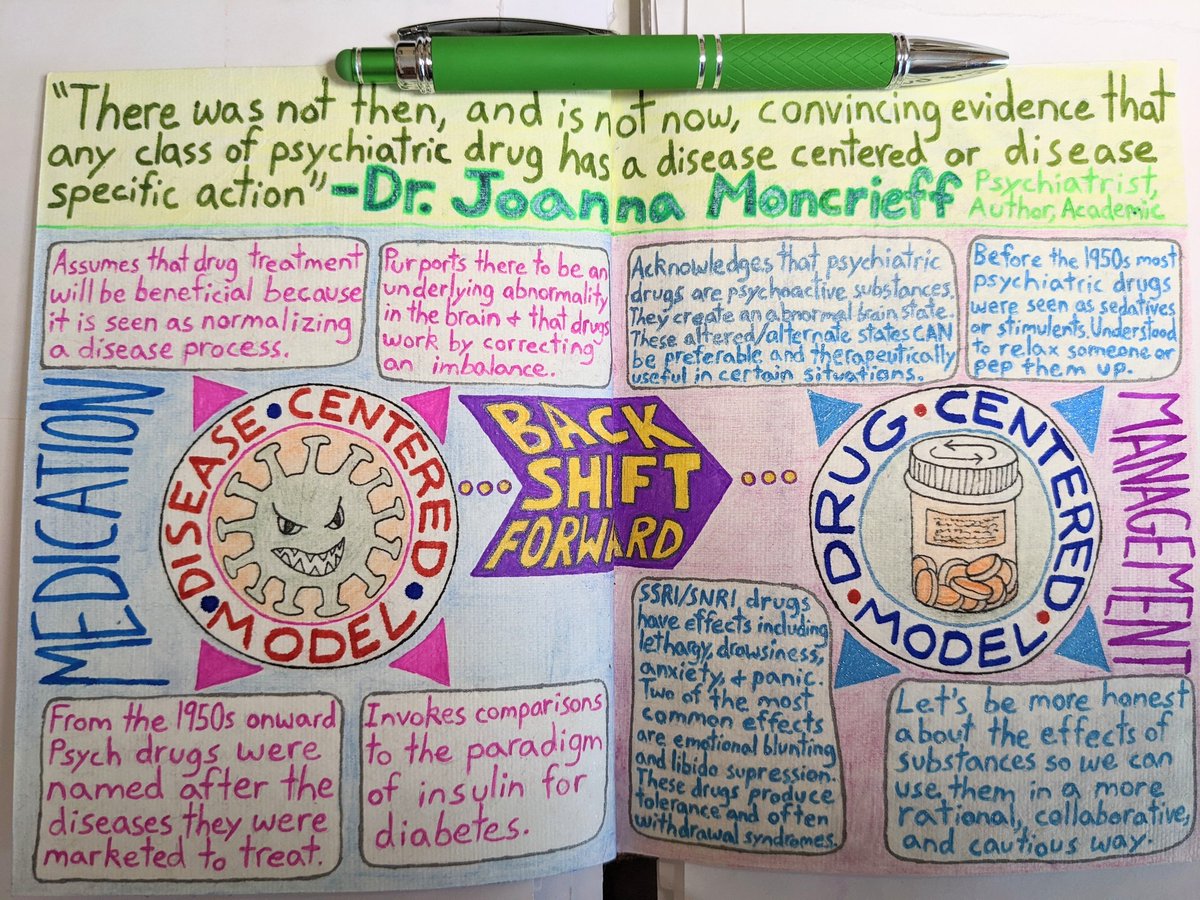 "There was not then, and is not now, convincing evidence that
any class of psychiatric drug has a disease centered or disease
specific action" -Dr. Joanna Moncrieff
Psychiatrist,
Author, Academic
Assumes that drug treatment
will be beneficial because
it is seen as normalizing
a disease process.
Purports there to be an
underlying abnormality
in the brain + that drugs
work by correcting
an imbalance.
Acknowledges that psychiatric
drugs are psychoactive substances.
They create an abnormal brain state.
These altered/alternate states CAN
be preferable and therapeutically
useful in certain situations.
Before the 1950s most
psychiatric drugs
were seen as sedatives
or stimulents. Understood
to relax someone or
pep them up.
MEDICATION
DISEASE • CENTERED • MODEL
BACK
SHIFT
FORWARD
DRUG • CENTERED • MODEL
MANAGEMENT
From the 1950s onward
Psych drugs were
named after the
diseases they were
marketed to treat.
Invokes comparisons
to the paradigm
of insulin for
diabetes.
SSRI/SNRI drugs
have effects including
lethargy, drowsiness,
anxiety, + panic.
Two of the most
common effects
are emotional blunting
and libido supression.
These drugs produce
tolerance and often
withdrawal syndromes.
Let's be more honest
about the effects of
substances so we can
use them in a more
rational, collaborative,
and cautious way.